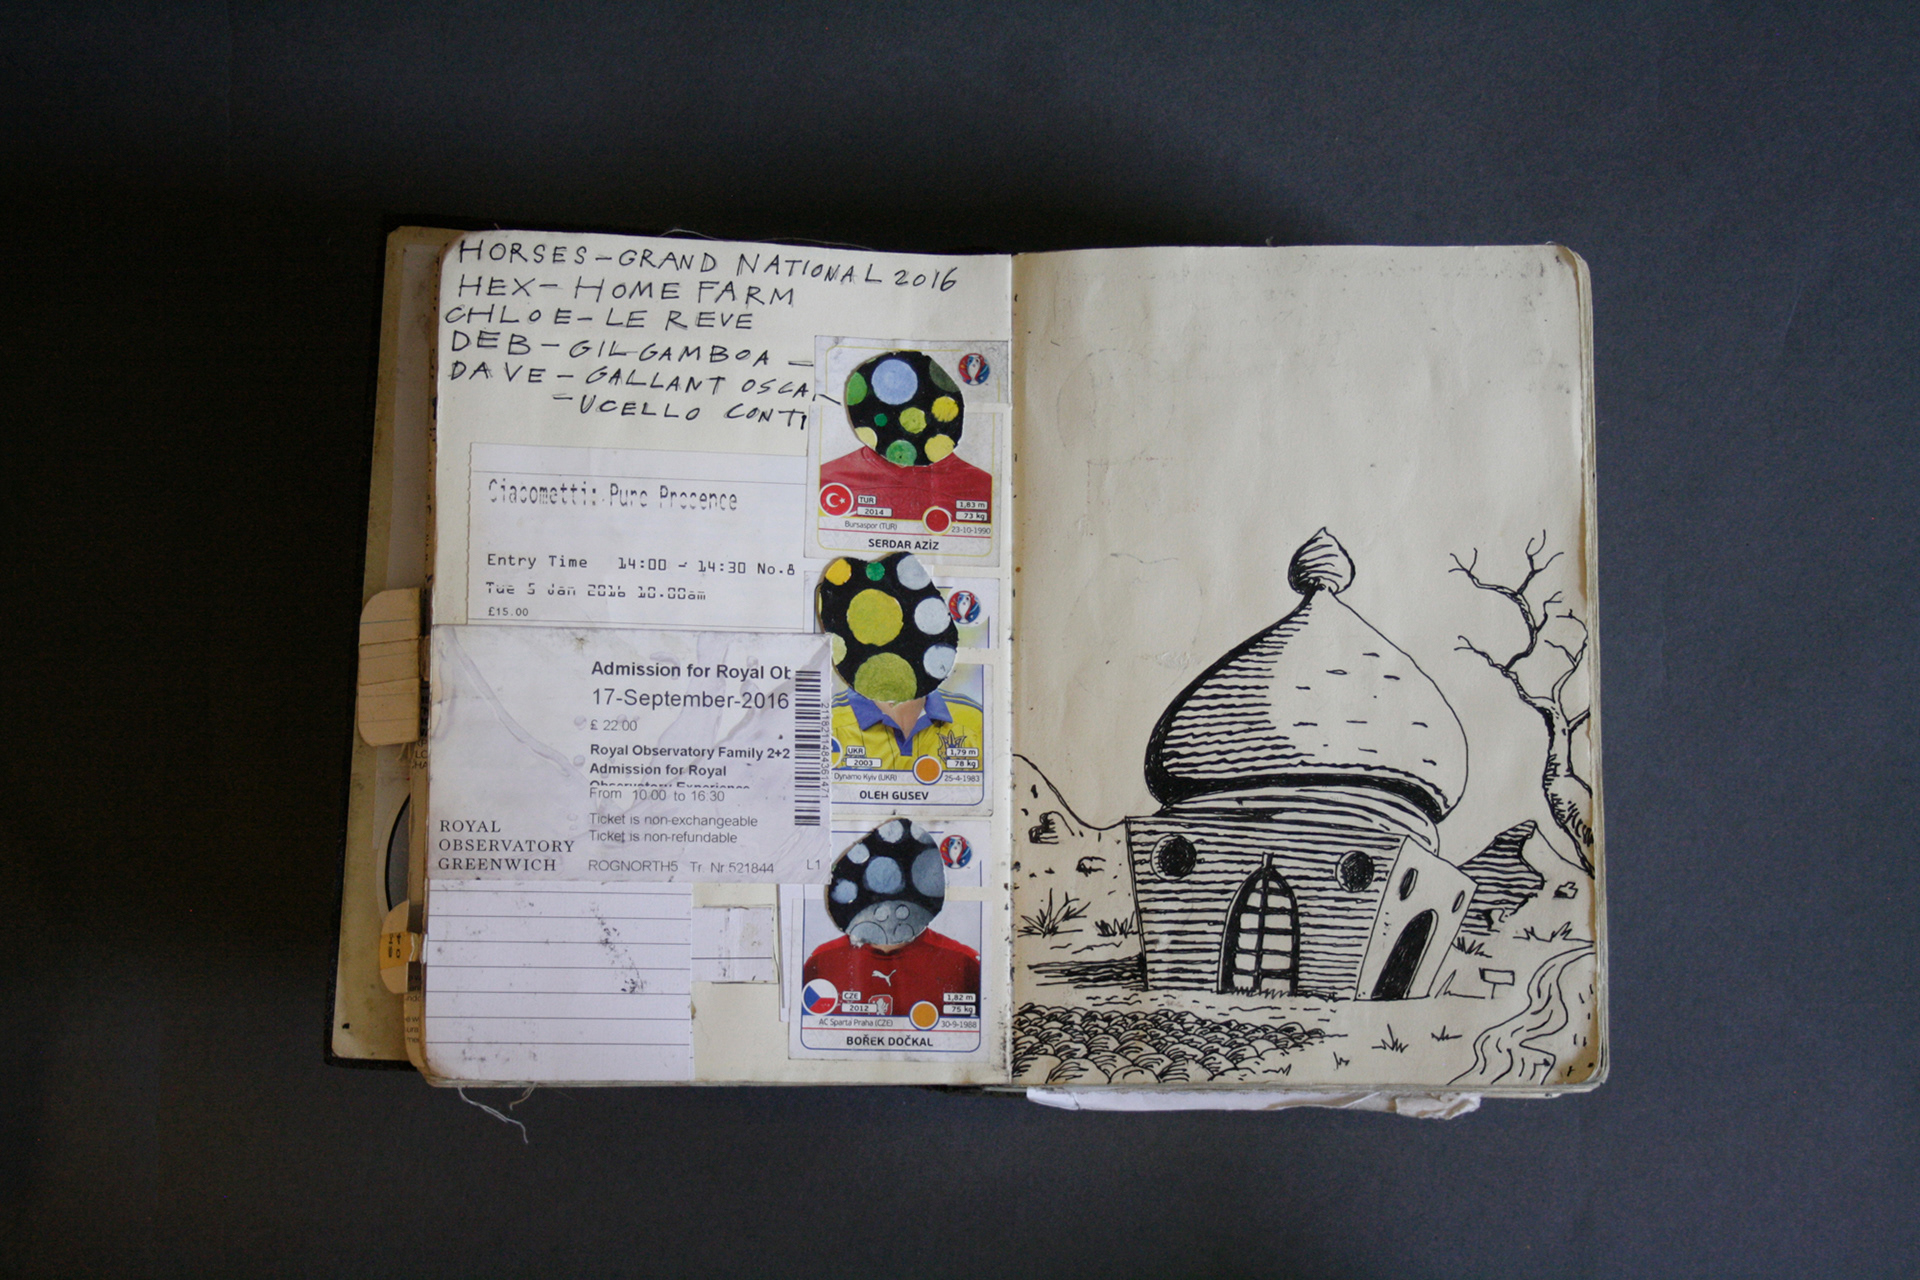 HORSES-GRAND NATIONAL 2016
HEX-HOME FARM
CHLOE-LE REVE
DEB-GILGAMBOA-
DAVE-GALLANT OSCA
-UCELLO CONTI
Giacometti: Pure Presence
Entry Time 14:00 - 14:30 No.8
Tue 5 Jan 2016 10.00am
£15.00
Admission for Royal Ob
17-September-2016
£ 22.00
Royal Observatory Family 2+2
Admission for Royal
Observatory Experience
From 10.00 to 16.30
Ticket is non-exchangeable
Ticket is non-refundable
ROGNORTH5 Tr. Nr.521844 L1
ROYAL
OBSERVATORY
GREENWICH
TUR
2014
1,83 m
73 kg
Bursaspor (TUR)
23-10-1990
SERDAR AZİZ
UKR
2003
1,79 m
78 kg
Dynamo Kyiv (UKR)
25-4-1983
OLEH GUSEV
CZE
2012
1,82 m
75 kg
AC Sparta Praha (CZE)
30-9-1988
BOŘEK DOČKAL